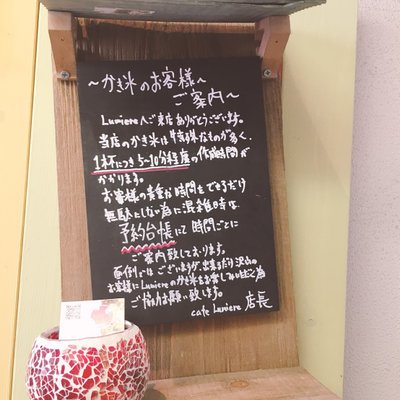 〜かき氷のお客様へ
ご案内〜
Lumiereへご来店ありがとうございます。
当店のかき氷は特殊なものが多く、
1杯につき5〜10分程度の作成時間が
かかります。
お客様の貴重なお時間をできるだけ
無駄にしない為に混雑時は、
予約台帳にて時間ごとに
ご案内致しております。
面倒ではございますが、出来るだけ沢山の
お客様にLumiereのかき氷をお楽しみいただく為
ご協力お願い致します。
cafe Lumiere 店長